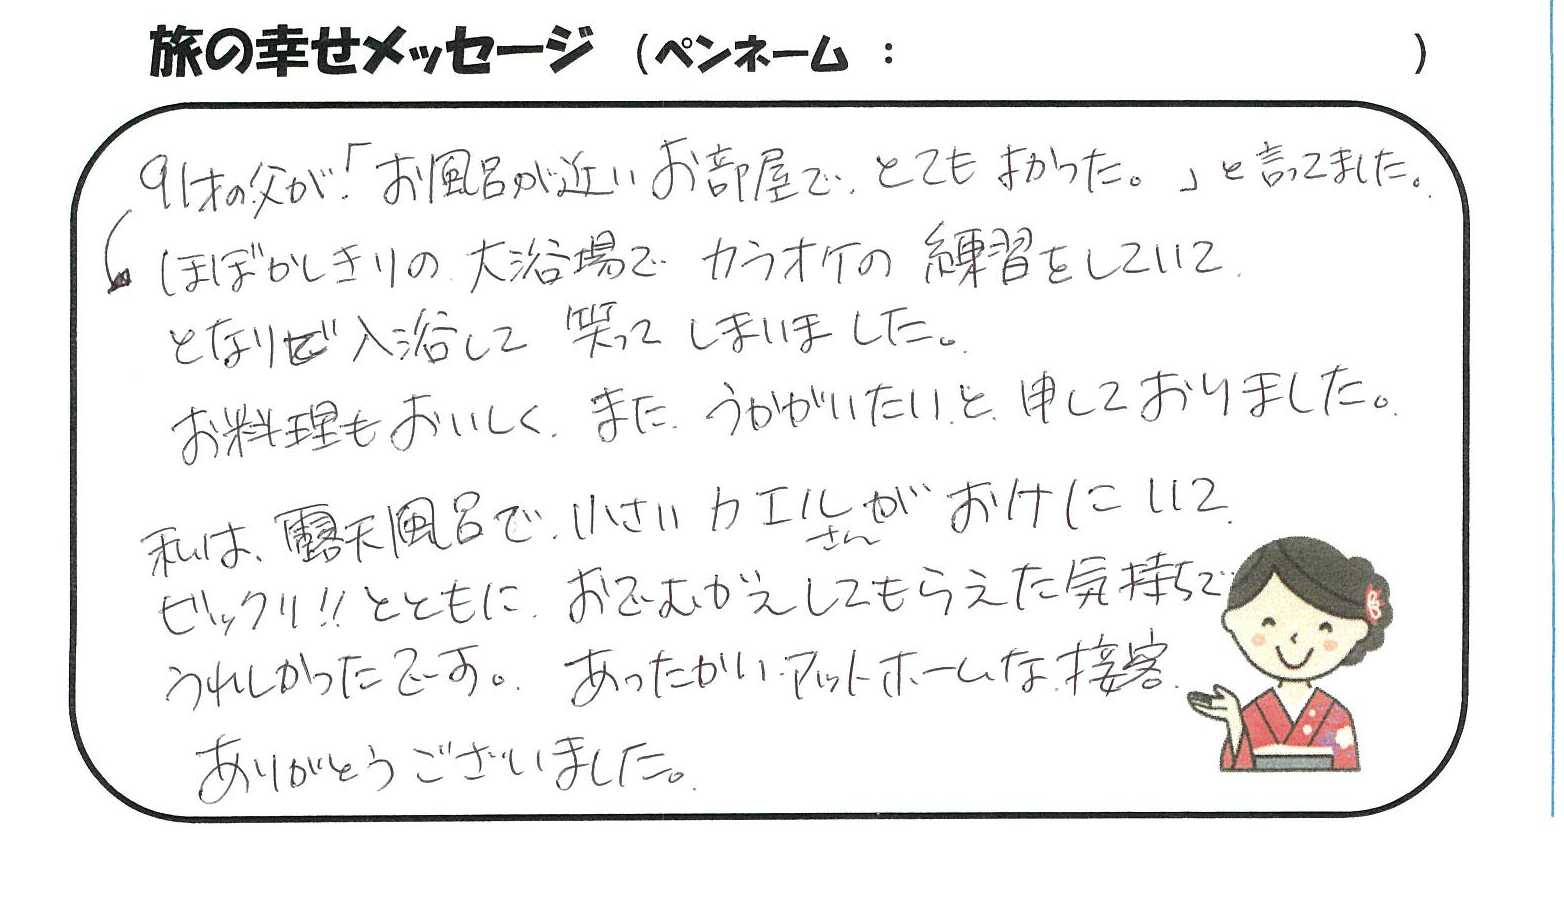 旅の幸せメッセージ (ペンネーム : )
91才の父が「お風呂が近いお部屋で、とてもよかった。」と言ってました。
ほぼかしきりの大浴場でカラオケの練習をしていて、
となりで入浴して笑ってしまいました。
お料理もおいしく、また、うかがいたいと、申しておりました。
私は、露天風呂で、小さいカエルさんがおけにいて、
ビックリ!!とともに、おでむかえしてもらえた気持ちで
うれしかったです。あったかいアットホームな接客、
ありがとうございました。